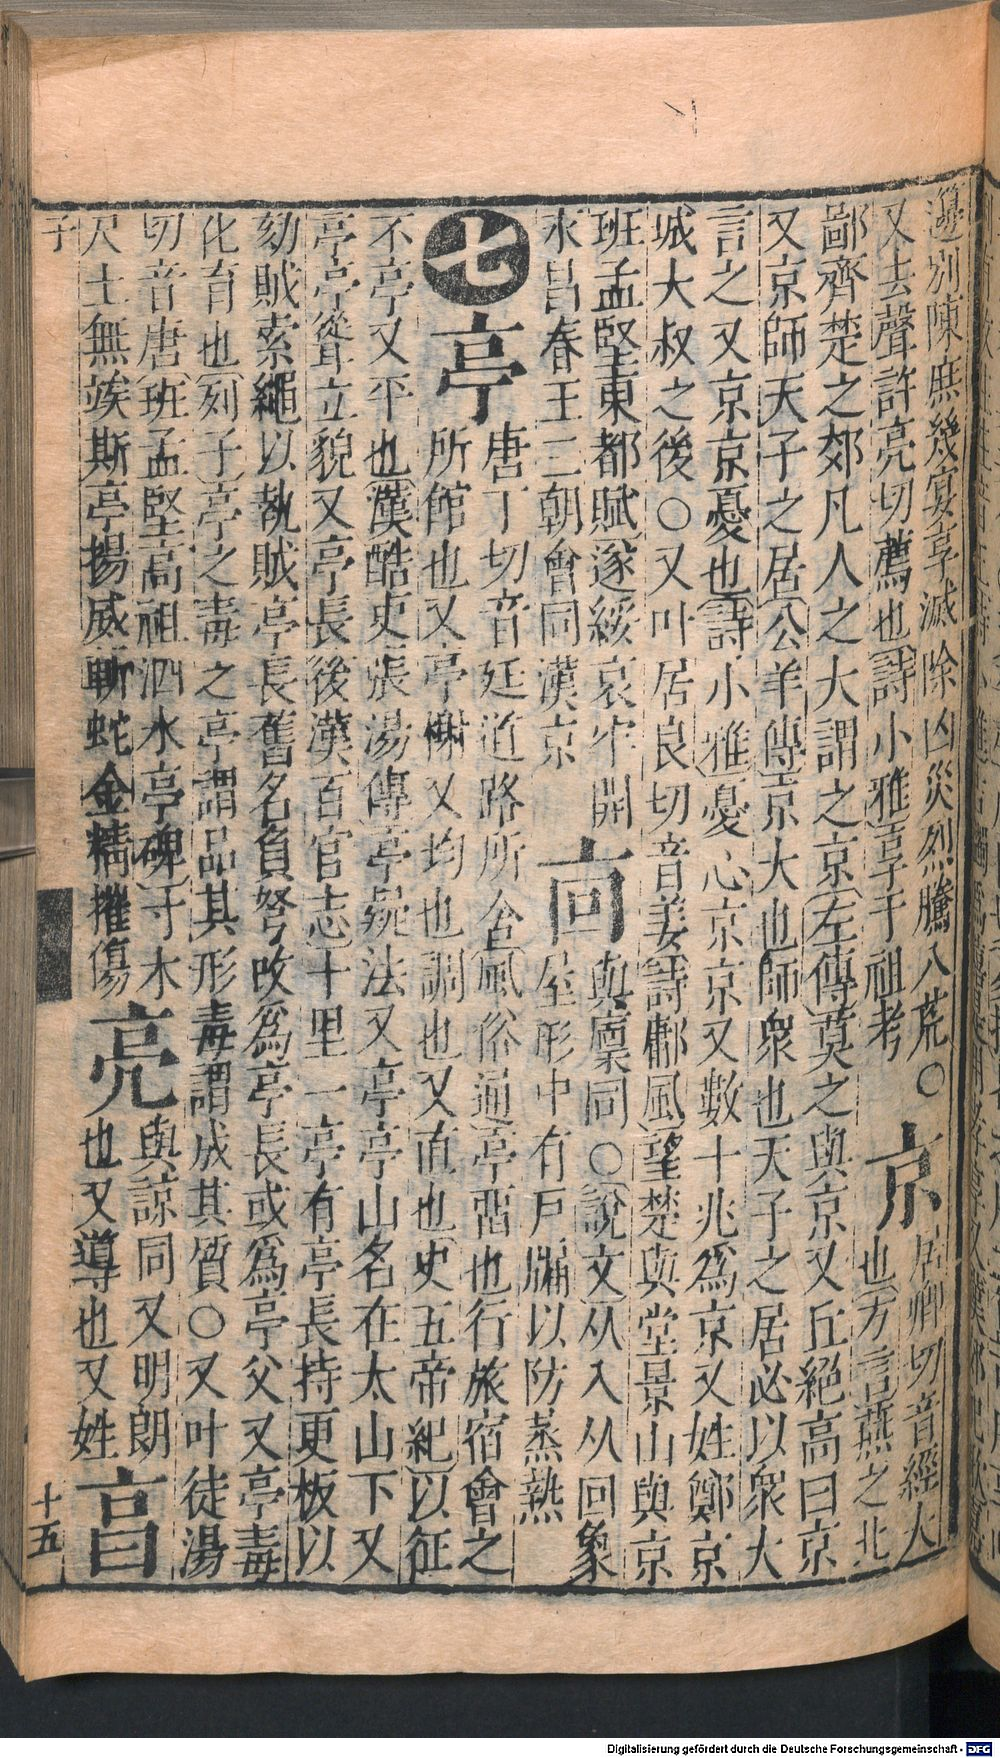 邊別陳庶幾宴享滅除凶災烈騰八荒○京居卿切音經大
又去聲許亮切薦也詩小雅享于祖考也方言燕之北
鄙齊楚之郊凡人之大謂之京左傳莫之與京又丘絕高曰京
又京師天子之居公羊傳京大也師眾也天子之居必以眾大
言之又京京憂也詩小雅憂心京京又數十兆爲京又姓鄭京
城大叔之後○又叶居良切音姜詩鄘風望楚與堂景山與京
班孟堅東都賦遂綏哀牢開
永昌春王三朝會同漢京
㐭與廩同○說文从入从回象
屋形中有戶牖以防蒸熱
七
亭唐丁切音廷道路所舍風俗通亭畱也行旅宿會之
所館也又亭榭又均也調也又直也史五帝紀以征
不亭又平也漢酷吏張湯傳亭疑法又亭亭山名在太山下又
亭亭聳立貌又亭長後漢百官志十里一亭有亭長持更板以
劾賊索繩以執賊亭長舊名負弩改爲亭長或爲亭父又亭毒
化育也列子亭之毒之亭謂品其形毒謂成其質○又叶徒湯
切音唐班孟堅高祖泗水亭碑寸木
尺土無竢斯亭揚威斬蛇金精摧傷
亮與諒同又明朗
也又導也又姓
亯
子
十五
Digitalisierung gefördert durch die Deutsche Forschungsgemeinschaft - DFG